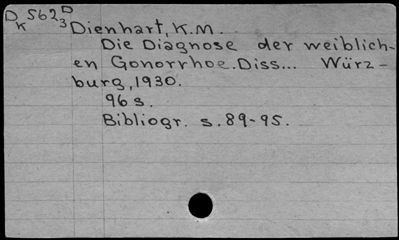 DK562D3 Dienhart, K.M.
Die Diagnose der weiblich-
en Gonorrhoe. Diss... Würz-
burg, 1930.
96 s.
Bibliogr. s. 89-95.